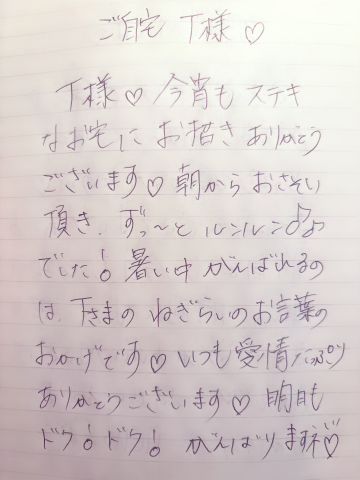 ご自宅 T様♡
T様♡ 今宵も ステキ
なお宅に お招き ありがとう
ございます♡ 朝から おさそい
頂き、ずっ〜と ルンルン♪♪
でした! 暑い中 がんばれるの
は、Tさまの ねぎらいのお言葉の
おかげです♡ いつも 愛情たっぷり
ありがとうございます♡ 明日も
ドク! ドク! がんばりますネ♡